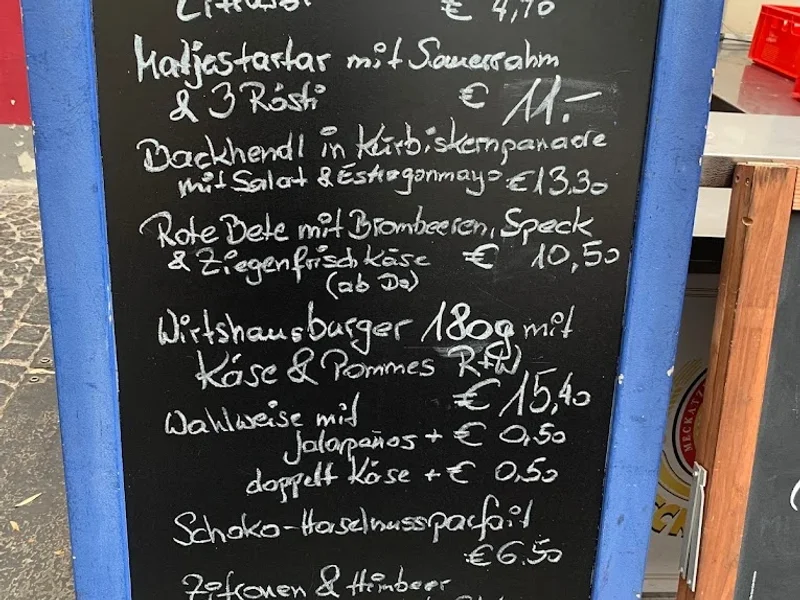 € 4,70
Matjestartar mit Sauerrahm
& 3 Rösti € 11.-
Backhendl in Kürbiskernpanade
mit Salat & Estragonmayo €13,30
Rote Bete mit Brombeeren, Speck
& Ziegenfrischkäse € 10,50
(ab Do)
Wirtshausburger 180g mit
Käse & Pommes R+W
€ 15,40
Wahlweise mit
Jalapeños + € 0,50
doppelt Käse + € 0,50
Schoko-Haselnussparfait
€6.50
Zitronen & Himbeer
MECKATZ